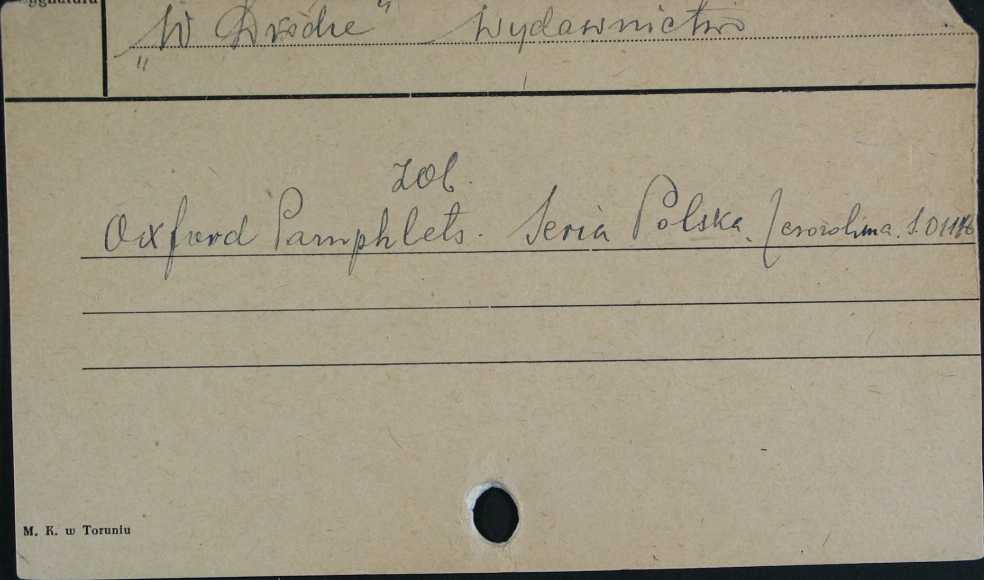 Sygnatura
"W Drodze" Wydawnictwo
zob.
Oxford Pamphlets. Seria Polska. Jerozolima.
M. K. w Toruniu